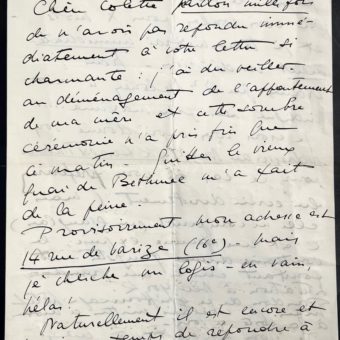 Chère Colette pardon mille fois
de n'avoir pas répondu immé-
diatement à votre lettre si
charmante : j'ai dû veiller
au déménagement de l'appartement
de ma mère et cette sombre
cérémonie n'a pris fin que
ce matin - Quitter le vieux
quai de Béthune m'a fait
de la peine
Provisoirement mon adresse est
14 rue de Varize (16e) - mais
je cherche un logis - en vain,
hélas!
Naturellement il est encore et
temps de répondre à